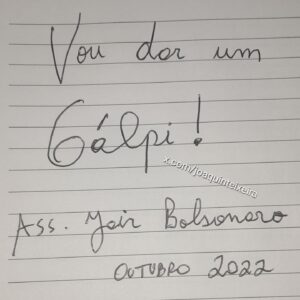 Vou dar um
Gálpi!
x.com/joaquinteixeira
Ass. Jair Bolsonaro
OUTUBRO 2022